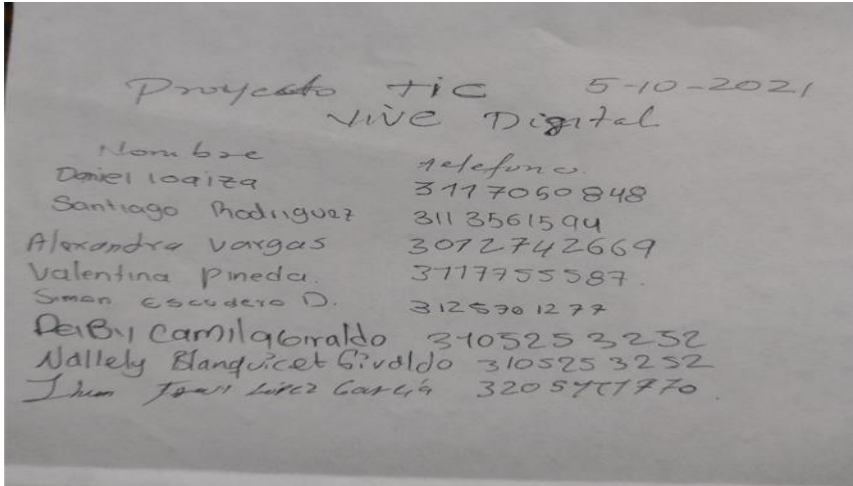 Proyecto tic 5-10-2021
Vive Digital
Nombre telefono.
Daniel loaiza 3117060848
Santiago Rodriguez 3113561594
Alexandra vargas 3012742669
Valentina pineda. 3117755587.
Simon Escudero D. 3125701277
DeiBy camila Giraldo 3105253252
Nallely Blanquicet Giraldo 3105253252
López García